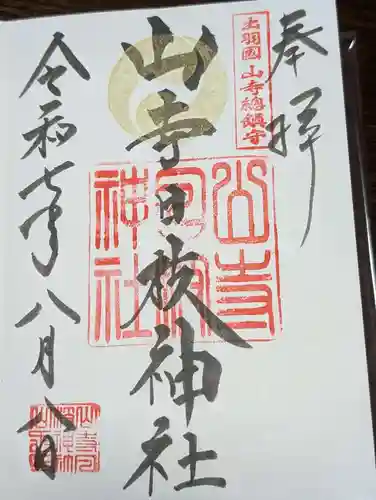 奉拝
出羽國 山寺總鎮守
山寺日枝神社
山寺日枝神社
令和七年八月八日